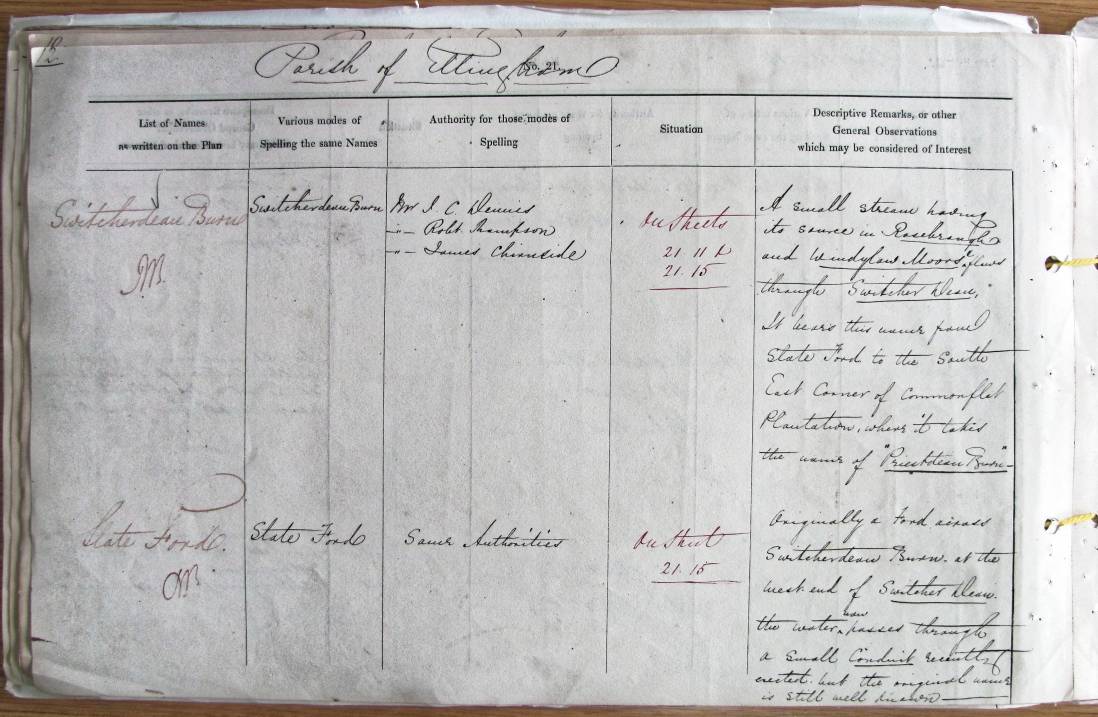 12
Parish of Ellingham
No. 21.
List of Names
as written on the Plan
Various modes of
Spelling the same Names
Authority for those modes of
Spelling
Situation
Descriptive Remarks, or other
General Observations
which may be considered of Interest
Switcherdean Burn
Switcherdean Burn
Mr I. C. Dennis
-"- Robt Thompson
-"- James Chirnside
On Sheets
21. 11 &
21. 15
A small stream having
its source in Rosebrough
and Windylaw Moors & flows
through Switcher Dean,
It bears this name from
Slate Ford to the South
East Corner of Commonflat
Plantation, where it takes
the name of "Priestdean Burn"
Slate Ford.
Slate Ford
Same Authorities
On Sheet
21. 15
Originally a Ford across
Switcherdean Burn. at the
west end of Switcher Dean.
the water now passes through
a small Conduit recently
erected. but the original name
is still well known